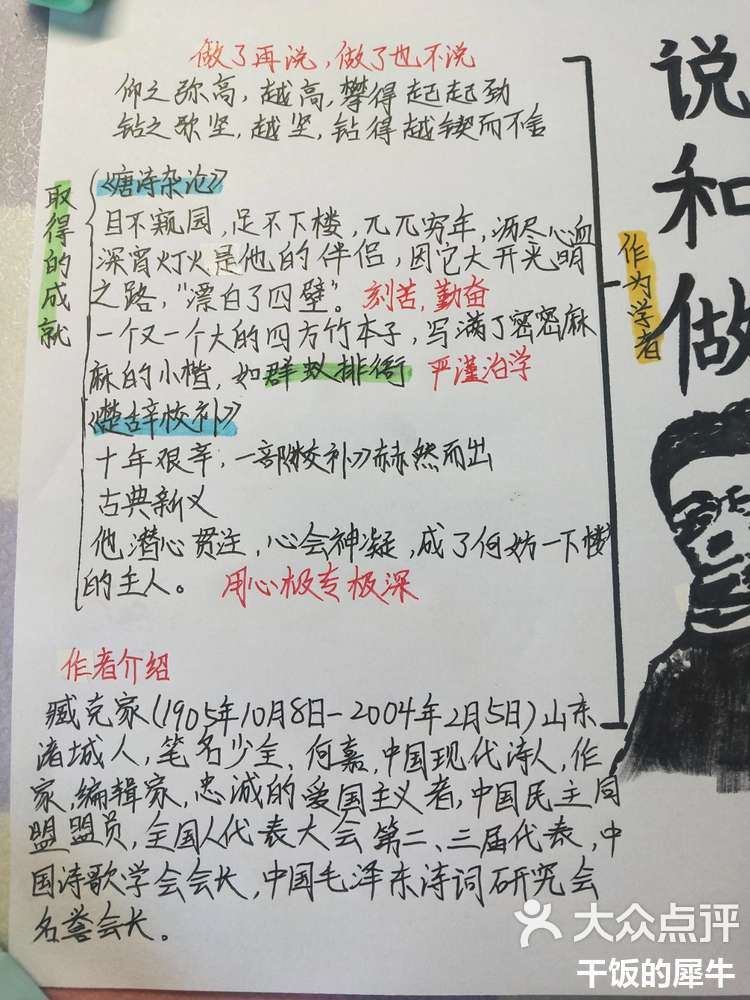 做了再说，做了也不说
仰之弥高，越高，攀得起起劲
钻之弥坚，越坚，钻得越锲而不舍
取得的成就
《唐诗杂论》
目不窥园，足不下楼，兀兀穷年，沥尽心血
深宵灯火是他的伴侣，因它大开光明
之路，"漂白了四壁"。刻苦，勤奋
一个又一个大的四方竹本子，写满了密密麻
麻的小楷，如群蚁排衙 严谨治学
《楚辞校补》
十年艰辛，一部《校补》赫然而出
古典新义
他潜心贯注，心会神凝，成了何妨一下楼
的主人。 用心极专极深
作为学者
说和做
作者介绍
臧克家(1905年10月8日-2004年2月5日)山东
诸城人，笔名少全、何嘉，中国现代诗人，作
家，编辑家，忠诚的爱国主义者，中国民主同
盟盟员，全国人代表大会第二、三届代表，中
国诗歌学会会长，中国毛泽东诗词研究会
名誉会长。
大众点评
干饭的犀牛